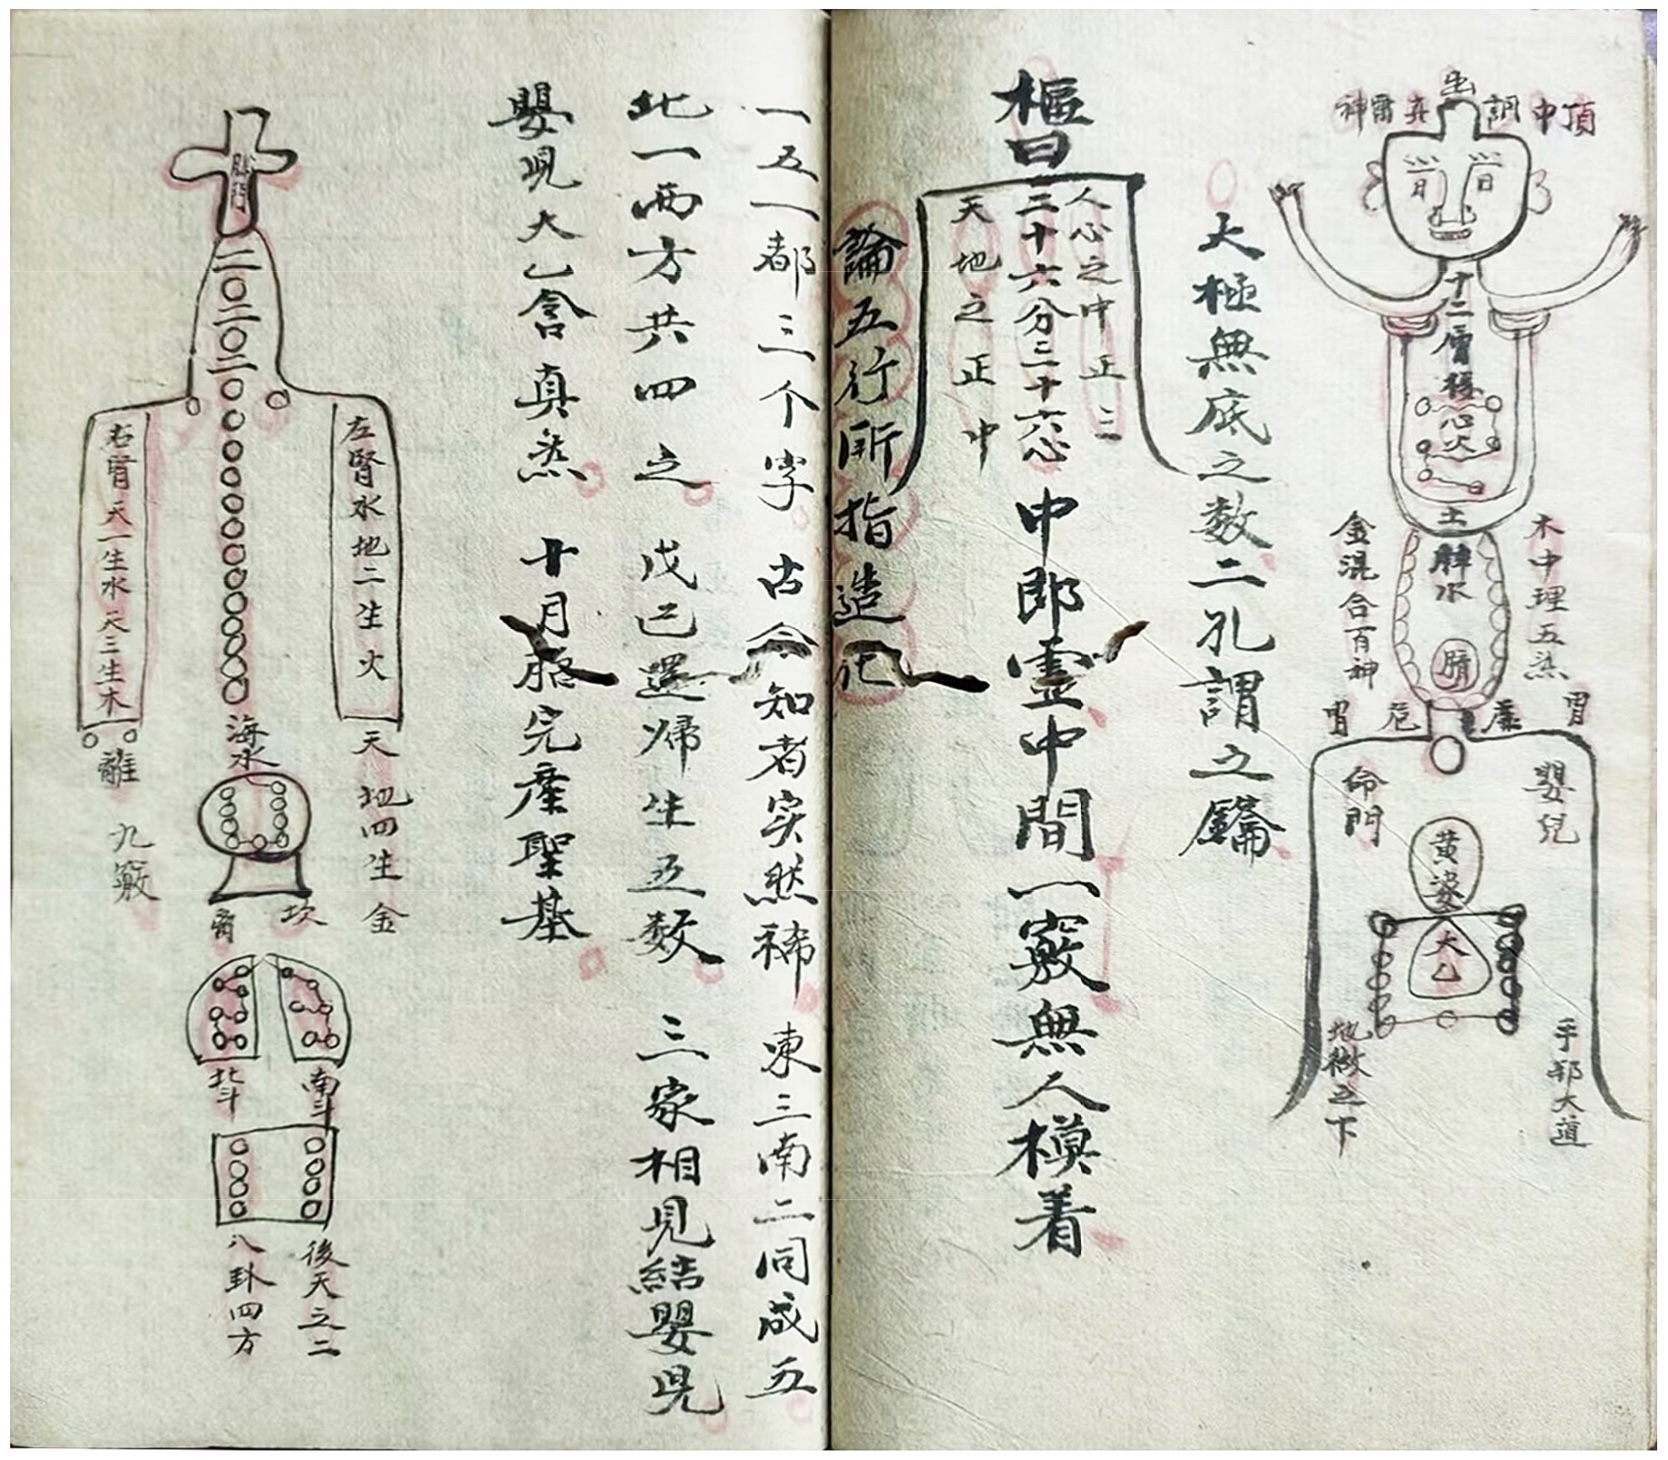 頂中
神
十二層樓
心火
土
脾水
金混合百神
木中理五炁
胃
胃
命門
嬰兒
黄婆
太乙
地微之下
手部大道
太極無底之数二孔謂之鑰
樞曰
人心之中正三
三十六分三十六心
天地之正中
中郎霊中間一竅無人模着
論五行所指造化
一五一都三个字古今知者实然稀東三南二同成五
北一西方共四之戊己還㷌生五数三家相見結嬰児
嬰児太乙含真炁十月胎完產聖基
二〇二〇二〇
左腎水地二生火
右腎天一生水天三生木
海水
離
九竅
天地四生金
坎
北斗
南斗
後天之二
八卦四方